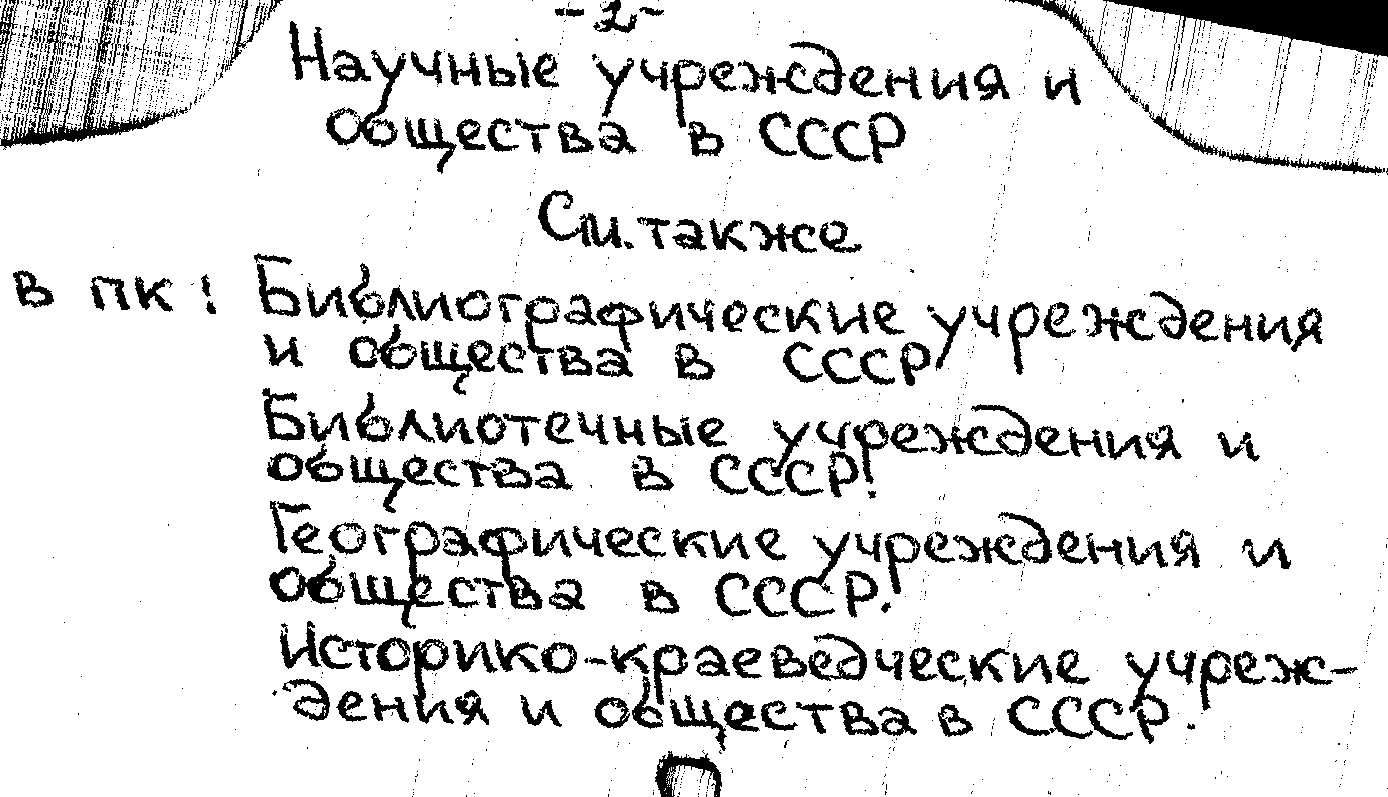 -2-
Научные учреждения и
общества в СССР
См. также
в ПК: Библиографические учреждения
и общества в СССР
Библиотечные учреждения и
общества в СССР.
Географические учреждения и
общества в СССР.
Историко-краеведческие учреж-
дения и общества в СССР.